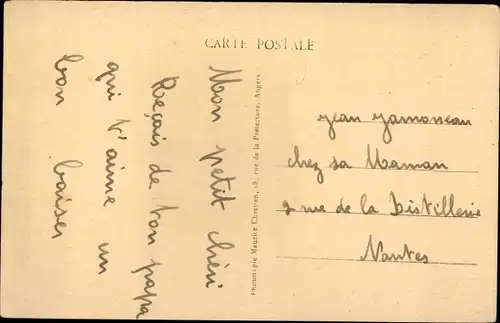 CARTE POSTALE
Mon petit chéri
Reçois de ton papa
qui t'aime un
bon baiser
Phototypie Maurice Chrétien, 18, rue de la Préfecture, Angers
Jean Jamoneau
chez sa Maman
2 rue de la Distillerie
Nantes